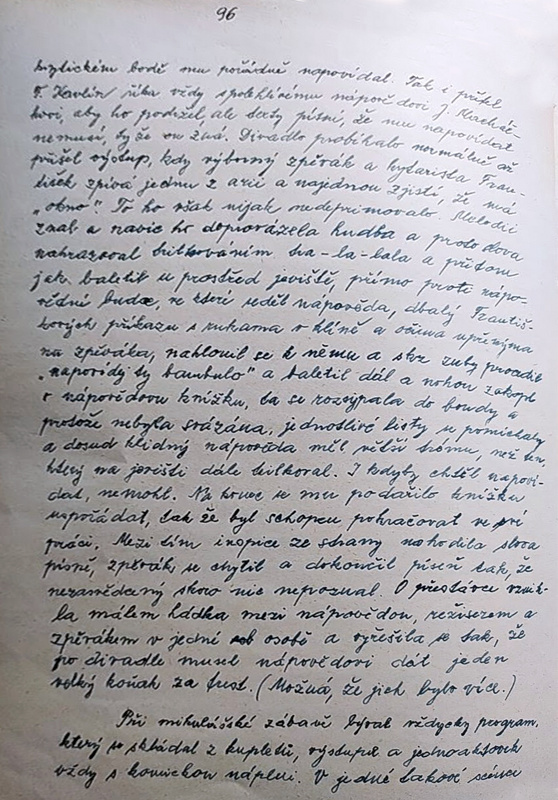 96
kritickém bodě mu pořádně napovídal. Tak i přítel
F. Havlín říka vždy spolehlivému nápovědovi J.
kovi, aby ho podržel, ale texty písní, že mu napovídat
nemusí, ty že on zná. Divadlo probíhalo normálně až
přišel výstup, kdy výborný zpěvák a kytarista Fran-
tišek zpívá jednu z arií a najednou zjistí, že má
„okno". To ho však nijak nedeprimovalo. Melodii
znal a navíc ho doprovázela hudba a proto slova
nahrazoval trilkováním tra-la-lala a přitom
jak baletil u prostřed jeviště, přímo proti nápo-
vědní budce, ve které seděl nápověda, dbalý Františ-
kových příkazu s rukama v klíně a očima upřenýma
na zpěváka, naklonil se k němu a skrz zuby procedil
„napovídej ty bambulo" a baletil dál a nohou zakopl
o nápovědovu knížku, ta se rozsypala do boudy a
protože nebyla svázána, jednotlivé listy se pomíchaly
a dosud klidný nápověda měl větší trému, než ten,
který na jevišti dále trilkoval. I kdyby chtěl napoví-
dat, nemohl. Na konec se mu podařilo knížku
uspořádat, tak že byl schopen pokračovat ve své
práci. Mezi tím inspice ze strany nahodila slova
písně, zpěvák se chytil a dokončil píseň tak, že
nezasvěcený skoro nic nepoznal. O přestávce vznik-
la málem hádka mezi nápovědou, režiserem a
zpěvákem v jedné osobě a vyřešila se tak, že
po divadle musel nápovědovi dát jeden
velký koňak za trest. (Možná, že jich bylo více.)
Při mikulášské zábavě býval vždycky program,
který se skládal z kupletů, výstupů a jednoaktovek
vždy s komickou náplní. V jedné takové scénce